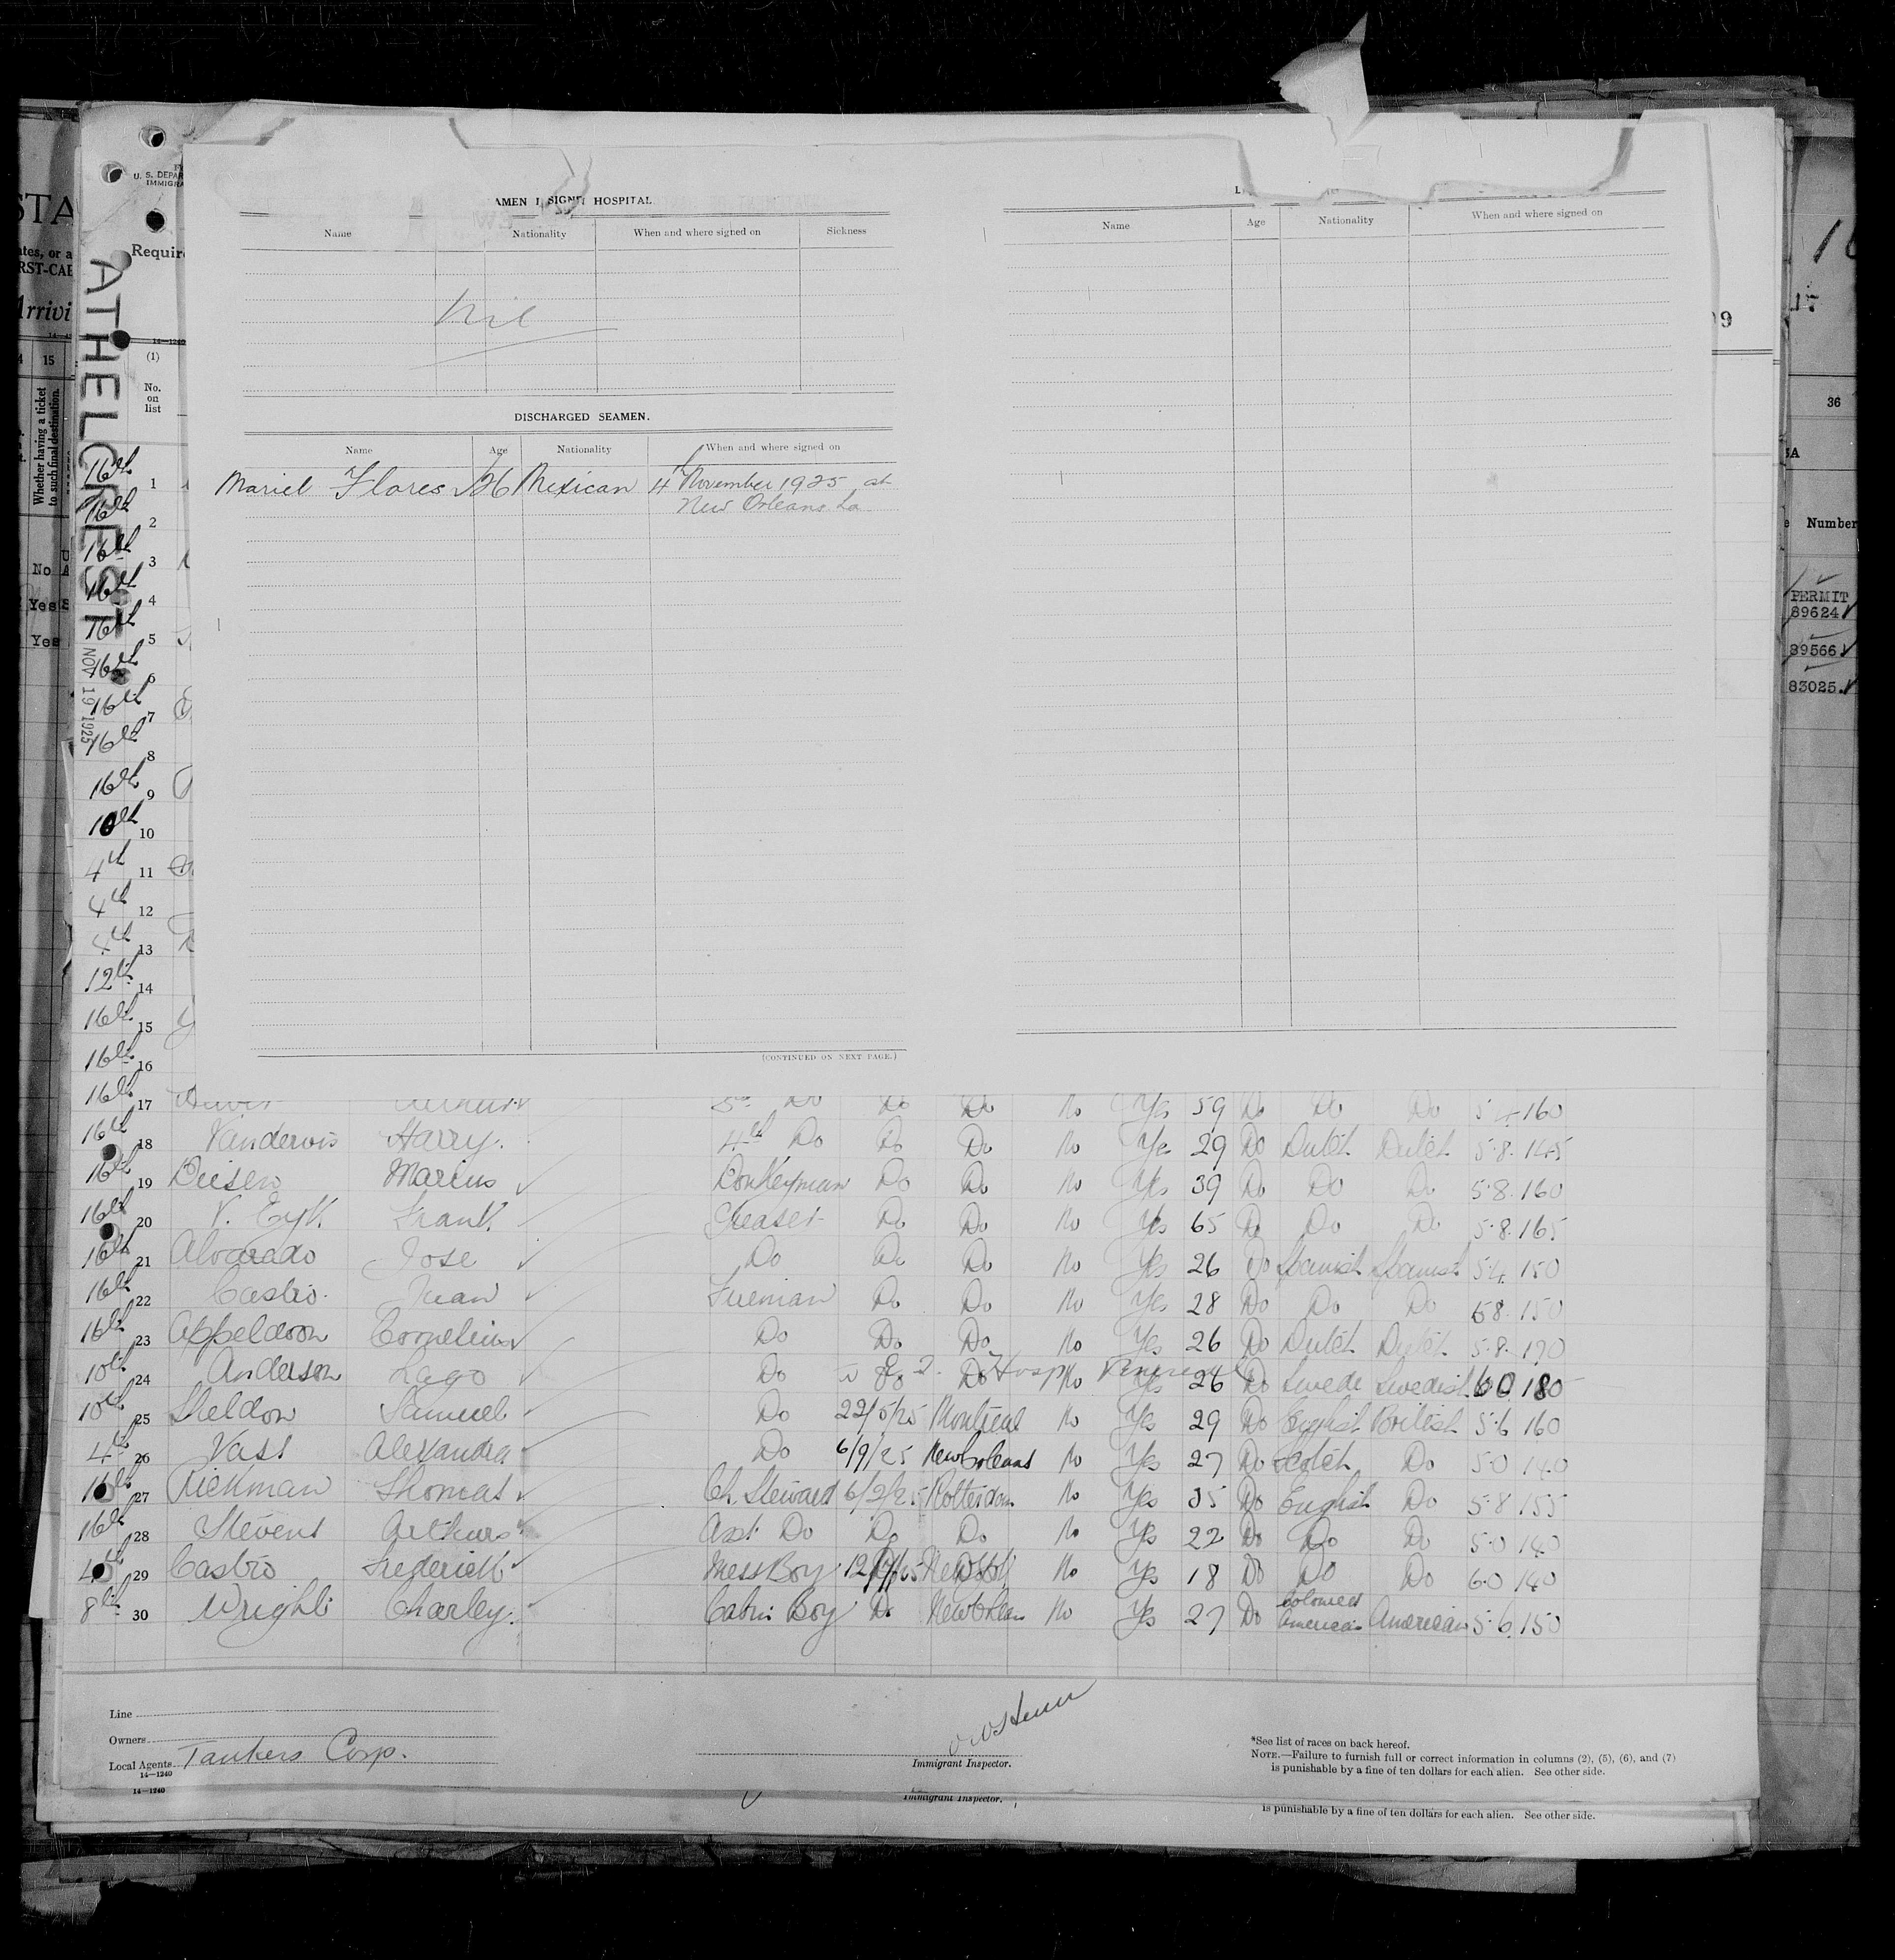 STA
ates, or a
RST-CAB
Arrivi
15
Whether having a ticket
to such final destination.
No
Yes
Yes
ATHELCREST
NOV 19 1925
U. S. DEPAR
IMMIGRA
Requir
14—1240
(1)
No.
on
list
SIGN HOSPITAL
Name Nationality When and where signed on Sickness
Nil
DISCHARGED SEAMEN.
Name Age Nationality When and where signed on
Mariel Flores 26 Mexican 4th November 1925 at
New Orleans La
(CONTINUED ON NEXT PAGE.)
Name Age Nationality When and where signed on
99
36
Number
PERMIT
89624
89566
83025
16th 1
16th 2
16th 3
16th 4
16th 5
16th 6
16th 7
16th 8
16th 9
10th 10
4th 11
4th 12
4th 13
12th 14
16th 15
16th 16
16th 17 Do Do Do No Yes 59 Do Do Do 5.4 160
16th 18 Vandervis Harry. 4th Do Do Do No Yes 29 Do Dutch Dutch 5.8. 145
16th 19 Biesen Marius Donkeyman Do Do No Yes 39 Do Do Do 5.8. 160
16th 20 V. Eyk Frank Greaser Do Do No Yes 65 Do Do Do 5.8. 165
16th 21 Alvarado Jose Do Do Do No Yes 26 Do Spanish Spanish 5.4. 150
16th 22 Castro. Juan Fireman Do Do No Yes 28 Do Do Do 5.8. 150
16th 23 Appeldoon Cornelius Do Do Do No Yes 26 Do Dutch Dutch 5.8. 170
10th 24 Anderson Lago Do Do Do Hosp No Yes 26 Do Swede Swedish 6.0 180
10th 25 Sheldon Samuel Do 22/5/25 Montreal No Yes 29 Do English British 5.6 160
4th 26 Vass Alexandra Do 6/9/25 New Orleans No Yes 27 Do Scotch Do 5.0 140
16th 27 Rickman Thomas Ch. Steward 6/2/25 Rotterdam No Yes 35 Do English Do 5.8 155
16th 28 Stevens Arthur Asst. Do Do Do No Yes 22 Do Do Do 5.0 140
29 Castro Frederick Mess Boy No Yes 18 Do Do Do 6.0 140
8th 30 Wright Charley. Cabin Boy Do New Orleans No Yes 27 Do Coloured American American 5.6. 150
Line
Owners
Local Agents Tankers Corp.
14—1240
Immigrant Inspector.
*See list of races on back hereof.
NOTE.—Failure to furnish full or correct information in columns (2), (5), (6), and (7)
is punishable by a fine of ten dollars for each alien. See other side.
14—1240
Immigrant Inspector.
is punishable by a fine of ten dollars for each alien. See other side.